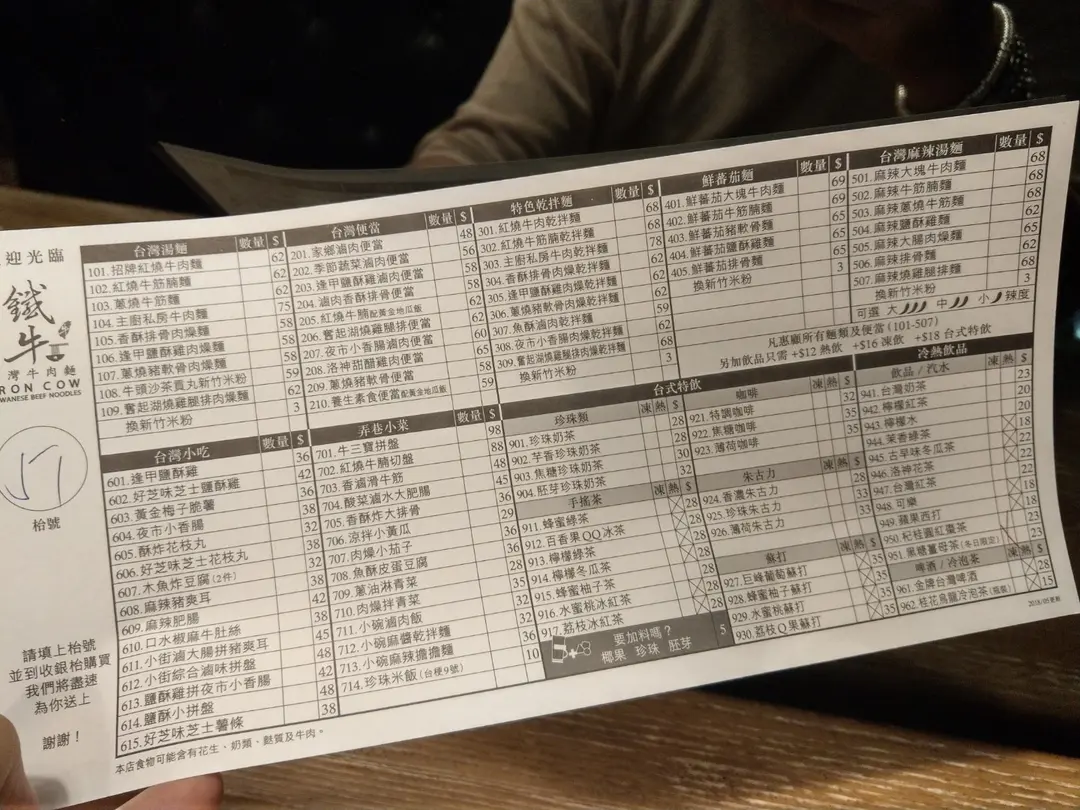 迎光臨
鐵牛
灣牛肉麵
RON COW
WANESE BEEF NOODLES
17
枱號
請填上枱號
並到收銀枱購買
我們將盡速
為你送上
謝謝！
台灣湯麵 數量 $
101.招牌紅燒牛肉麵 62
102.紅燒牛筋腩麵 62
103.蔥燒牛筋麵 62
104.主廚私房牛肉麵 75
105.香酥排骨肉燥麵 58
106.逢甲鹽酥雞肉燥麵 58
107.蔥燒豬軟骨肉燥麵 59
108.牛頭沙茶貢丸新竹米粉 58
109.奮起湖燒雞腿排肉燥麵 62
換新竹米粉 3
台灣便當 數量 $
201.家鄉滷肉便當 48
202.季節蔬菜滷肉便當 56
203.逢甲鹽酥雞滷肉便當 62
204.滷肉香酥排骨便當 62
205.紅燒牛腩配黃金地瓜飯
206.奮起湖燒雞腿排便當
207.夜市小香腸滷肉便當 60
208.洛神甜醋雞肉便當
209.蔥燒豬軟骨便當
210.養生素食便當配黃金地瓜飯 59
特色乾拌麵 數量 $
301.紅燒牛肉乾拌麵 68
302.紅燒牛筋腩乾拌麵 68
303.主廚私房牛肉乾拌麵 78
304.香酥排骨肉燥乾拌麵 62
305.逢甲鹽酥雞肉燥乾拌麵 62
306.蔥燒豬軟骨肉燥乾拌麵
307.魚酥滷肉乾拌麵
308.夜市小香腸肉燥乾拌麵
309.奮起湖燒雞腿排肉燥乾拌麵 68
換新竹米粉 3
鮮蕃茄麵 數量 $
401.鮮蕃茄大塊牛肉麵 69
402.鮮蕃茄牛筋腩麵 69
403.鮮蕃茄豬軟骨麵 65
404.鮮蕃茄鹽酥雞麵 65
405.鮮蕃茄排骨麵 65
換新竹米粉 3
台灣麻辣湯麵 數量 $
501.麻辣大塊牛肉麵 68
502.麻辣牛筋腩麵 68
503.麻辣蔥燒牛筋麵 68
504.麻辣鹽酥雞麵 62
505.麻辣大腸肉燥麵 65
506.麻辣排骨麵 62
507.麻辣燒雞腿排麵 68
換新竹米粉 3
可選 大 中 小 辣度
凡惠顧所有麵類及便當 (101-507)
另加飲品只需 +$12 熱飲 +$16 凍飲 +$18 台式特飲
台灣小吃 數量 $
601.逢甲鹽酥雞 36
602.好芝味芝士鹽酥雞 42
603.黃金梅子脆薯 36
604.夜市小香腸 38
605.酥炸花枝丸 32
606.好芝味芝士花枝丸 38
607.木魚炸豆腐(2件) 32
608.麻辣豬爽耳 38
609.麻辣肥腸 38
610.口水椒麻牛肚絲 42
611.小街滷大腸拼豬爽耳 45
612.小街綜合滷味拼盤 48
613.鹽酥雞拼夜市小香腸 42
614.鹽酥小拼盤 48
615.好芝味芝士薯條 38
弄巷小菜 數量 $
701.牛三寶拼盤 98
702.紅燒牛腩切盤 88
703.香滷滑牛筋 48
704.酸菜滷水大肥腸 45
705.香酥炸大排骨 36
706.涼拌小黃瓜 29
707.肉燥小茄子 36
708.魚酥皮蛋豆腐 36
709.蔥油淋青菜
710.肉燥拌青菜
711.小碗滷肉飯
712.小碗麻醬乾拌麵 32
713.小碗麻辣擔擔麵 36
714.珍珠米飯(台梗9號) 10
台式特飲
珍珠類 凍 熱 $
901.珍珠奶茶 28
902.芋香珍珠奶茶 30
903.焦糖珍珠奶茶 30
904.胚芽珍珠奶茶 32
手搖茶 凍 熱 $
911.蜂蜜綠茶 28
912.百香果QQ冰茶 28
913.檸檬綠茶 28
914.檸檬冬瓜茶
915.蜂蜜柚子茶 28
916.水蜜桃冰紅茶 28
917.荔枝冰紅茶 28
要加料嗎？
椰果 珍珠 胚芽 5
咖啡 凍 熱 $
921.特調咖啡 32
922.焦糖咖啡 35
923.薄荷咖啡 35
朱古力 凍 熱 $
924.香濃朱古力 28
925.珍珠朱古力 33
926.薄荷朱古力 33
蘇打 凍 熱 $
927.巨峰葡萄蘇打 35
928.蜂蜜柚子蘇打 35
929.水蜜桃蘇打 35
930.荔枝Q果蘇打 35
冷熱飲品
飲品 / 汽水 凍 熱 $
941.台灣奶茶 23
942.檸檬紅茶 20
943.檸檬水 20
944.茉香綠茶 18
945.古早味冬瓜茶 22
946.洛神花茶 22
947.台灣紅茶 18
948.可樂 18
949.蘋果西打
950.杞桂圓紅棗茶 23
951.黑糖薑母茶(冬日限定) 23
啤酒 / 冷泡茶 凍 熱 $
961.金牌台灣啤酒 28
962.桂花烏龍冷泡茶(瓶裝) 15
2018/05更新
本店食物可能含有花生、奶類、麩質及牛肉。